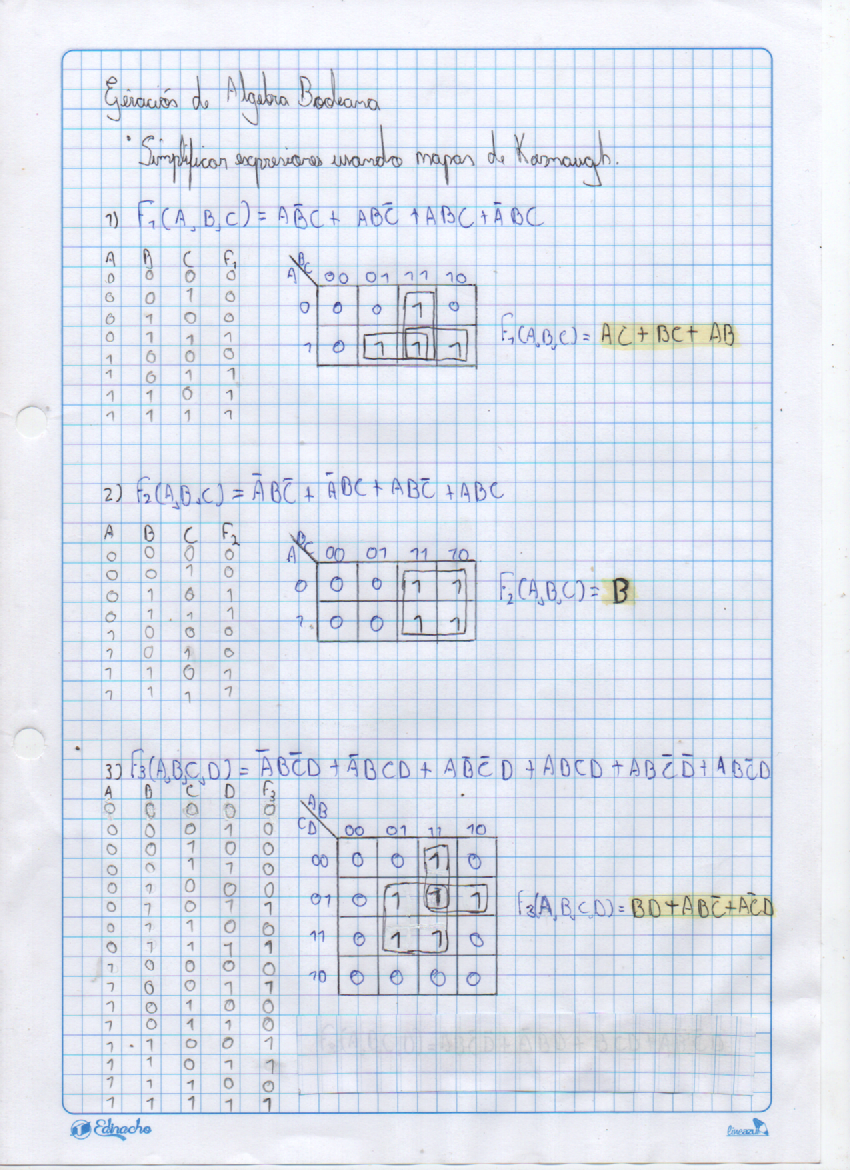 Ejercicios de Algebra Booleana
· Simplificar expresiones usando mapas de Karnaugh.
1) F₁(A,B,C) = AB̄C + ABC̄ + ABC + ĀBC
A B C F₁
0 0 0 0
0 0 1 0
0 1 0 0
0 1 1 1
1 0 0 0
1 0 1 1
1 1 0 1
1 1 1 1
BC
A 00 01 11 10
0 0 0 1 0
1 0 1 1 1
F₁(A,B,C) = AC + BC + AB
2) F₂(A,B,C) = ĀBC̄ + ĀBC + ABC̄ + ABC
A B C F₂
0 0 0 0
0 0 1 0
0 1 0 1
0 1 1 1
1 0 0 0
1 0 1 0
1 1 0 1
1 1 1 1
BC
A 00 01 11 10
0 0 0 1 1
1 0 0 1 1
F₂(A,B,C) = B
3) F₃(A,B,C,D) = ĀBC̄D + ĀBCD + AB̄C̄D + ABCD + ABC̄D̄ + ABC̄D
A B C D F₃
0 0 0 0 0
0 0 0 1 0
0 0 1 0 0
0 0 1 1 0
0 1 0 0 0
0 1 0 1 1
0 1 1 0 0
0 1 1 1 1
1 0 0 0 0
1 0 0 1 1
1 0 1 0 0
1 0 1 1 0
1 1 0 0 1
1 1 0 1 1
1 1 1 0 0
1 1 1 1 1
AB
CD 00 01 11 10
00 0 0 1 0
01 0 1 1 1
11 0 1 1 0
10 0 0 0 0
F₃(A,B,C,D) = BD + ABC̄ + AC̄D
Ednacho